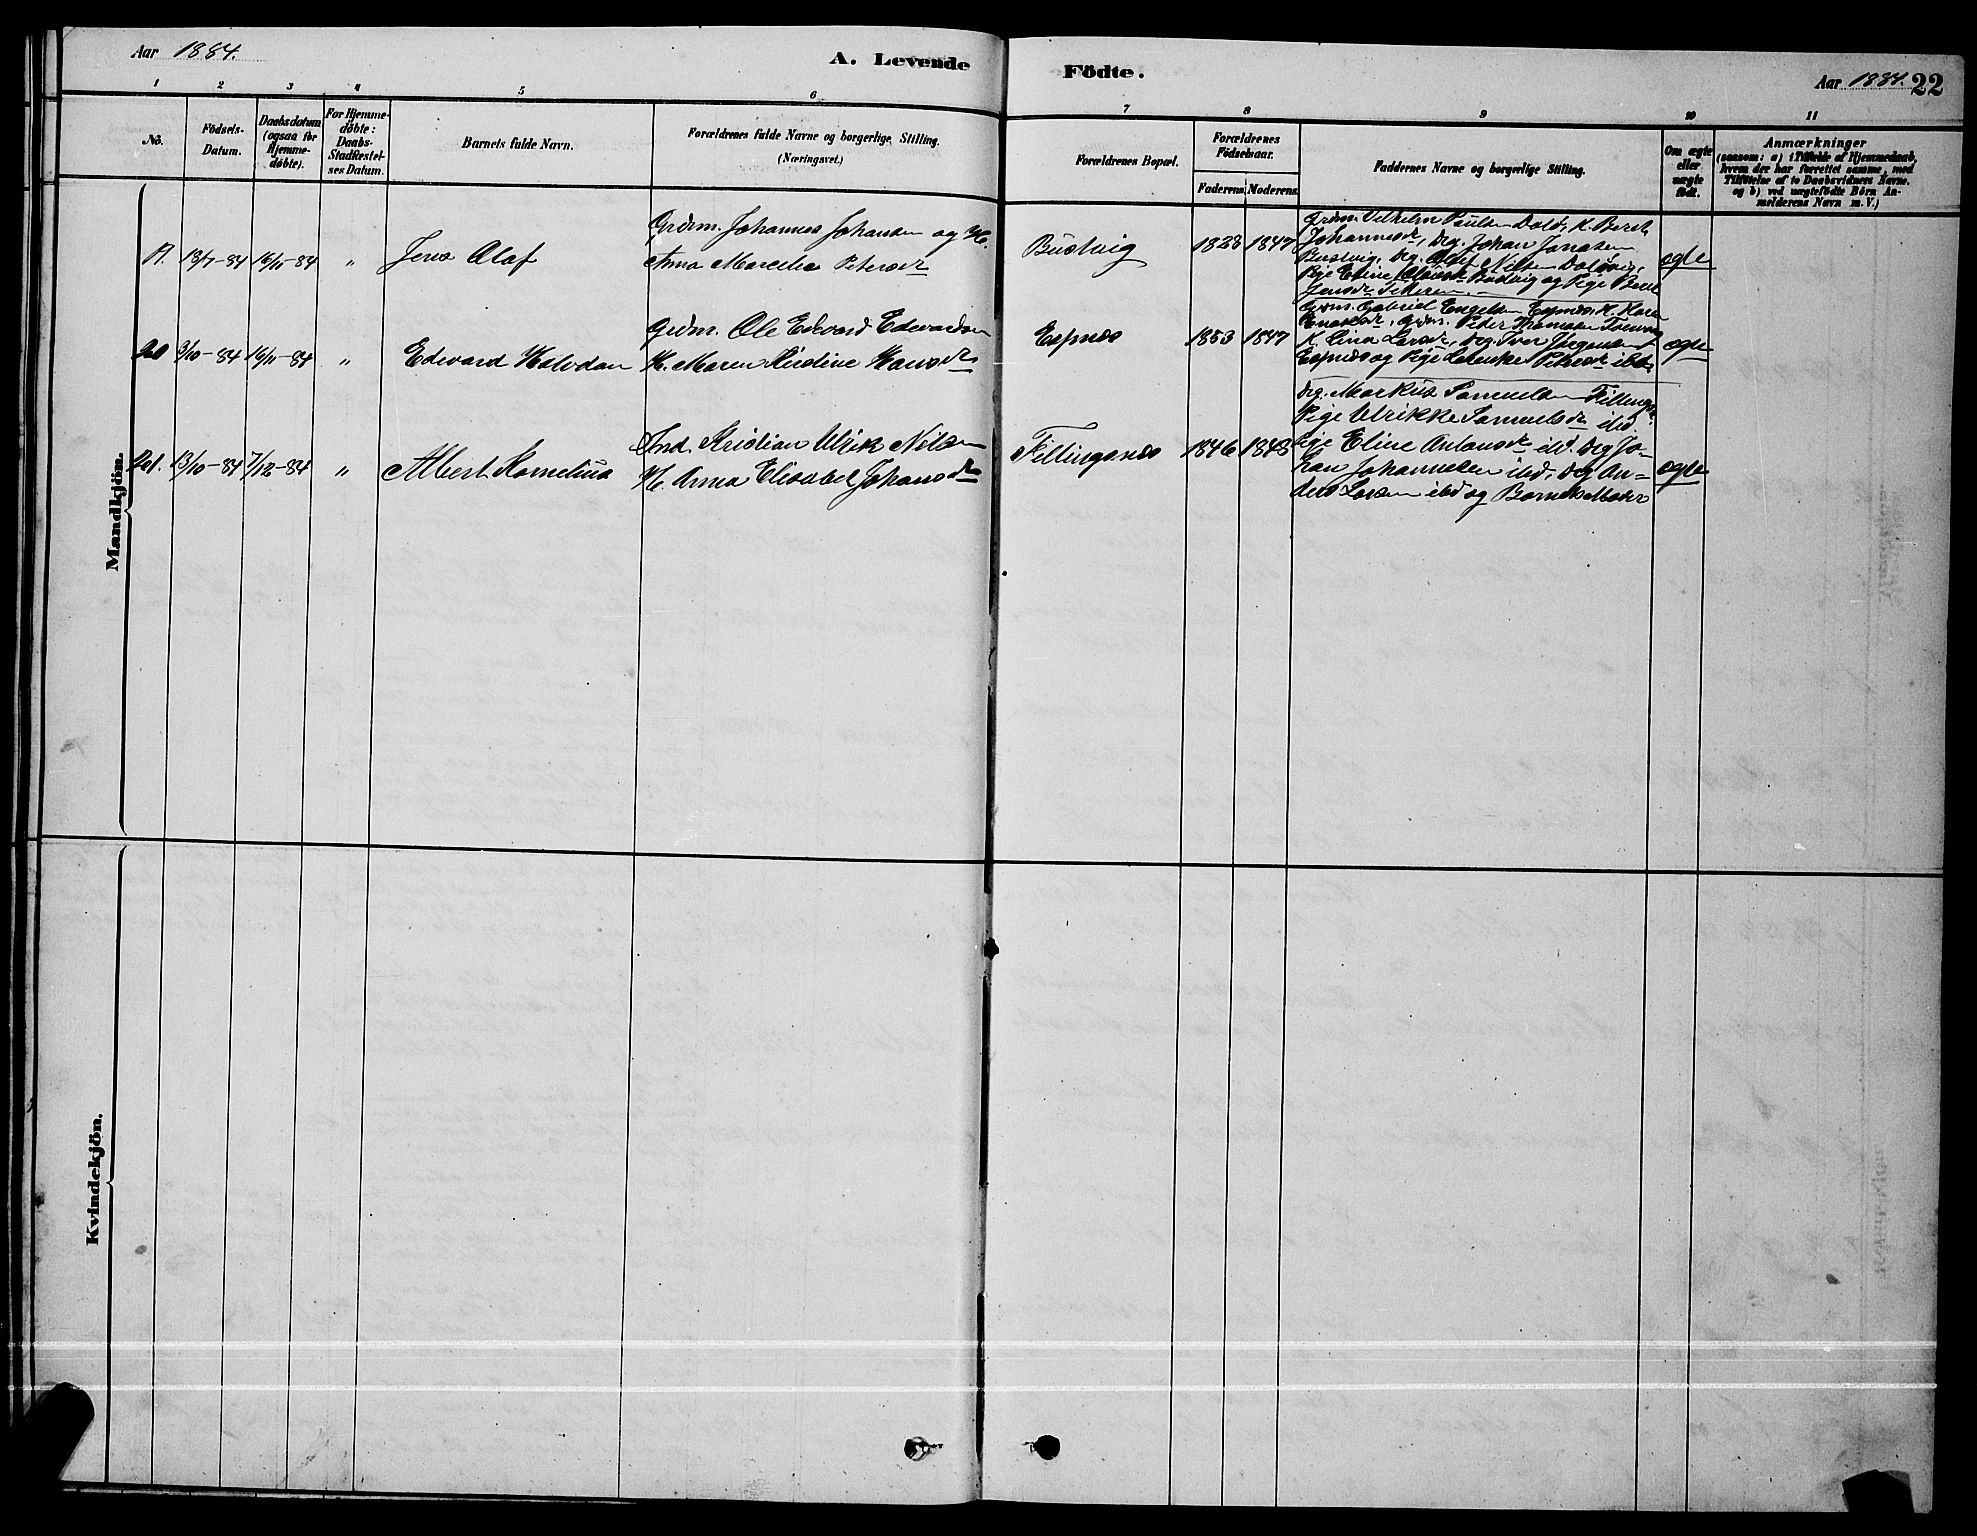 Aar 1884.
A. Levende
Födte.
Aar 1884. 22
1 2 3 4 5 6 7 8 9 10 11
No.
Födsels-
Datum.
Daabsdatum
(ogsaa for
Hjemme-
døbte).
For Hjemme-
døbte:
Daabs-
Stadfæstel-
ses Datum.
Barnets fulde Navn.
Forældrenes fulde Navne og borgerlige Stilling.
(Næringsvei.)
Forældrenes Bopæl.
Forældrenes
Födselsaar.
Faderens. Moderens.
Faddernes Navne og borgerlige Stilling.
Om ægte
eller
uægte
født.
Anmærkninger
(saasom: a) i Tilfælde af Hjemmedaab,
hvem der har forrettet samme, med
Tilføielse af to Daabsvidners Navne.
og b) ved uægtefødte Börn An-
melderens Navn m. V.)
Mandkjön.
13/7-84 16/11-84 " Jens Olaf
Grdm. Johannes Johansen og H.
Anna Marcelie Petersdr
Busvig 1828 1847
Grdm. Vilhelm Paulsen Dolø, K. Berit
Johannesdr, Drg. Johan Jonassen
Busvig, Drg. Nilsen Doløvig,
Pige Eline Busvig og Pige
Jensdr
ægte
20 3/10-84 16/11-84 " Edevard Halvdan
Grdm. Ole Edevard Edevardsen
H. Maren Kirstine Hansdr
Espnæs 1853 1847
Grdm. Gabriel Engelsen Espnæs, K. Karen
Grdm. Peder Thomasen
K. Lina Larsdr, Drg. Iver Jörgensen
Espnæs og Pige Petersdr ibd.
ægte
21. 13/10-84 7/12-84 " Albert Kornelius
Ind. Kristian Ulrik Nilsen
H. Anna Elisabet Johansdr
Fillingsnæs 1846 1848
Drg. Markus Samuelsen Fillingsn.
Pige Ulrikke Samuelsdr ibd.
Pige Eline Antonsdr ibd. Drg Jo-
han Johannesen ibd, Drg An-
ders Larsen ibd og Barnets Moder
ægte
Kvindekjön.